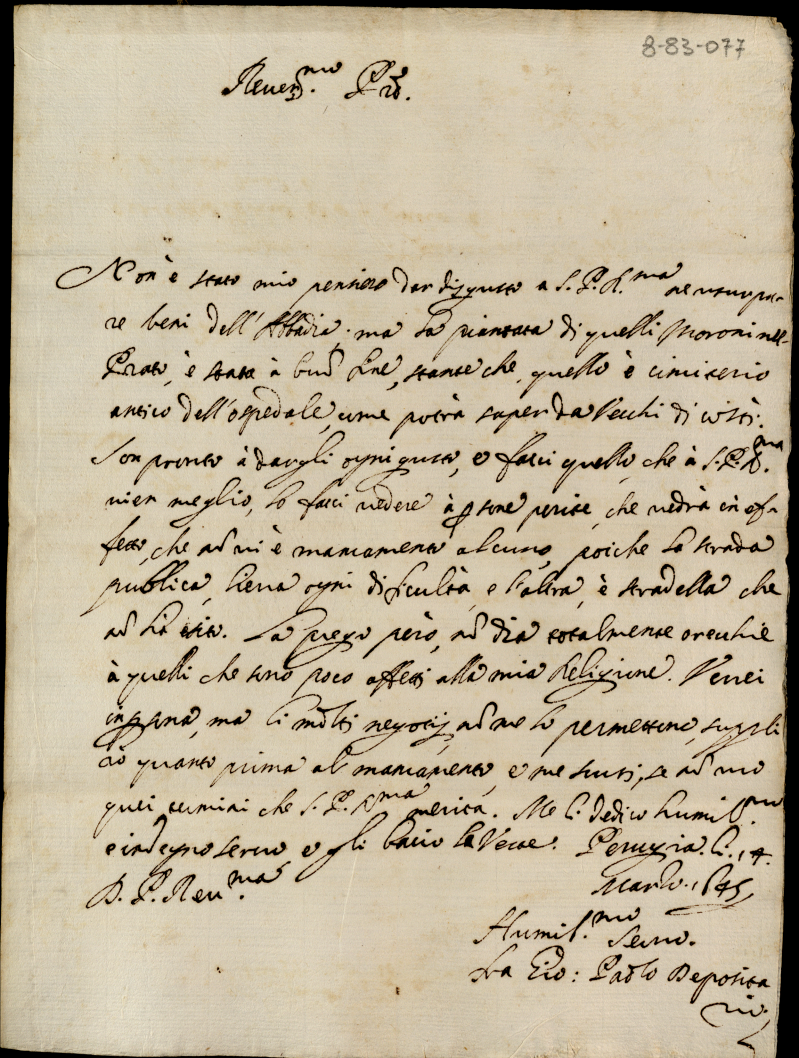 8-83-077
Reuer.mo P.re
Non è stato mio pensiero dar disgusto a S.P.R.ma ne usurpa-
re beni dell'Abbadia. ma la piantata di quelli Moroni nel
Prato, è stata à buo fine, stante che, quello è cimiterio
antico dell'ospedale, come potrà saper da Vecchi di costì.
Son pronto à dargli ogni gusto, e facci quello, che à S.P.R.ma
vien meglio, lo facci vedere à psone perite, che vedrà in ef-
fetto, che no vi è mancamento alcuno, poiche la strada
publica, lieva ogni dificultà, e l'altra, è stradella che
no hà esito. La prego però, no dia totalmente orecchie
à quelli che sono poco affetti alla mia Religione. Verrei
in psona, ma li molti negotij, no me lo permettono, suppli
rò quanto prima al mancamento, e me scusi, se no uso
quei termini che S.P.R.ma merita. Me li dedico humil.mo
e indegno seruo, e gli bacio la Veste. Perugia. li. 14.
Marzo. 1645
D.P.Reu.ma
Humil.mo Seruo.
fra Gio: Paolo Deposita
rio